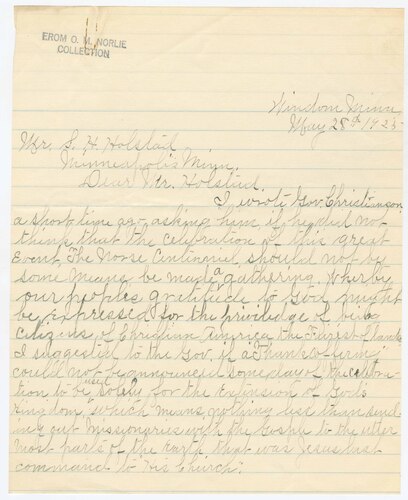 FROM O. M. NORLIE
COLLECTION
Windom Minn
May 28th 1925
Mr. S. H. Holstad
Minneapolis Minn.
Dear Mr. Holstad.
I wrote Gov Christianson
a short time ago asking him if he did not
think that the celebration of this great
Event The Norse Centennial should not by
some means be made a gathering wherby
our peoples gratitude to God might
be expressed for the priviledge of being
Citizens of Christian America the Fairest of lands
I suggested to the Gov, if a Thank offering
could not be announced some day of the celebra-
tion to be used solely for the Extension of Gods
Kingdom, which means, nothing less than send-
ing out Missionaries with the Gospel to the utter
most parts of the Earth, that was Jesus last
command to his Church.